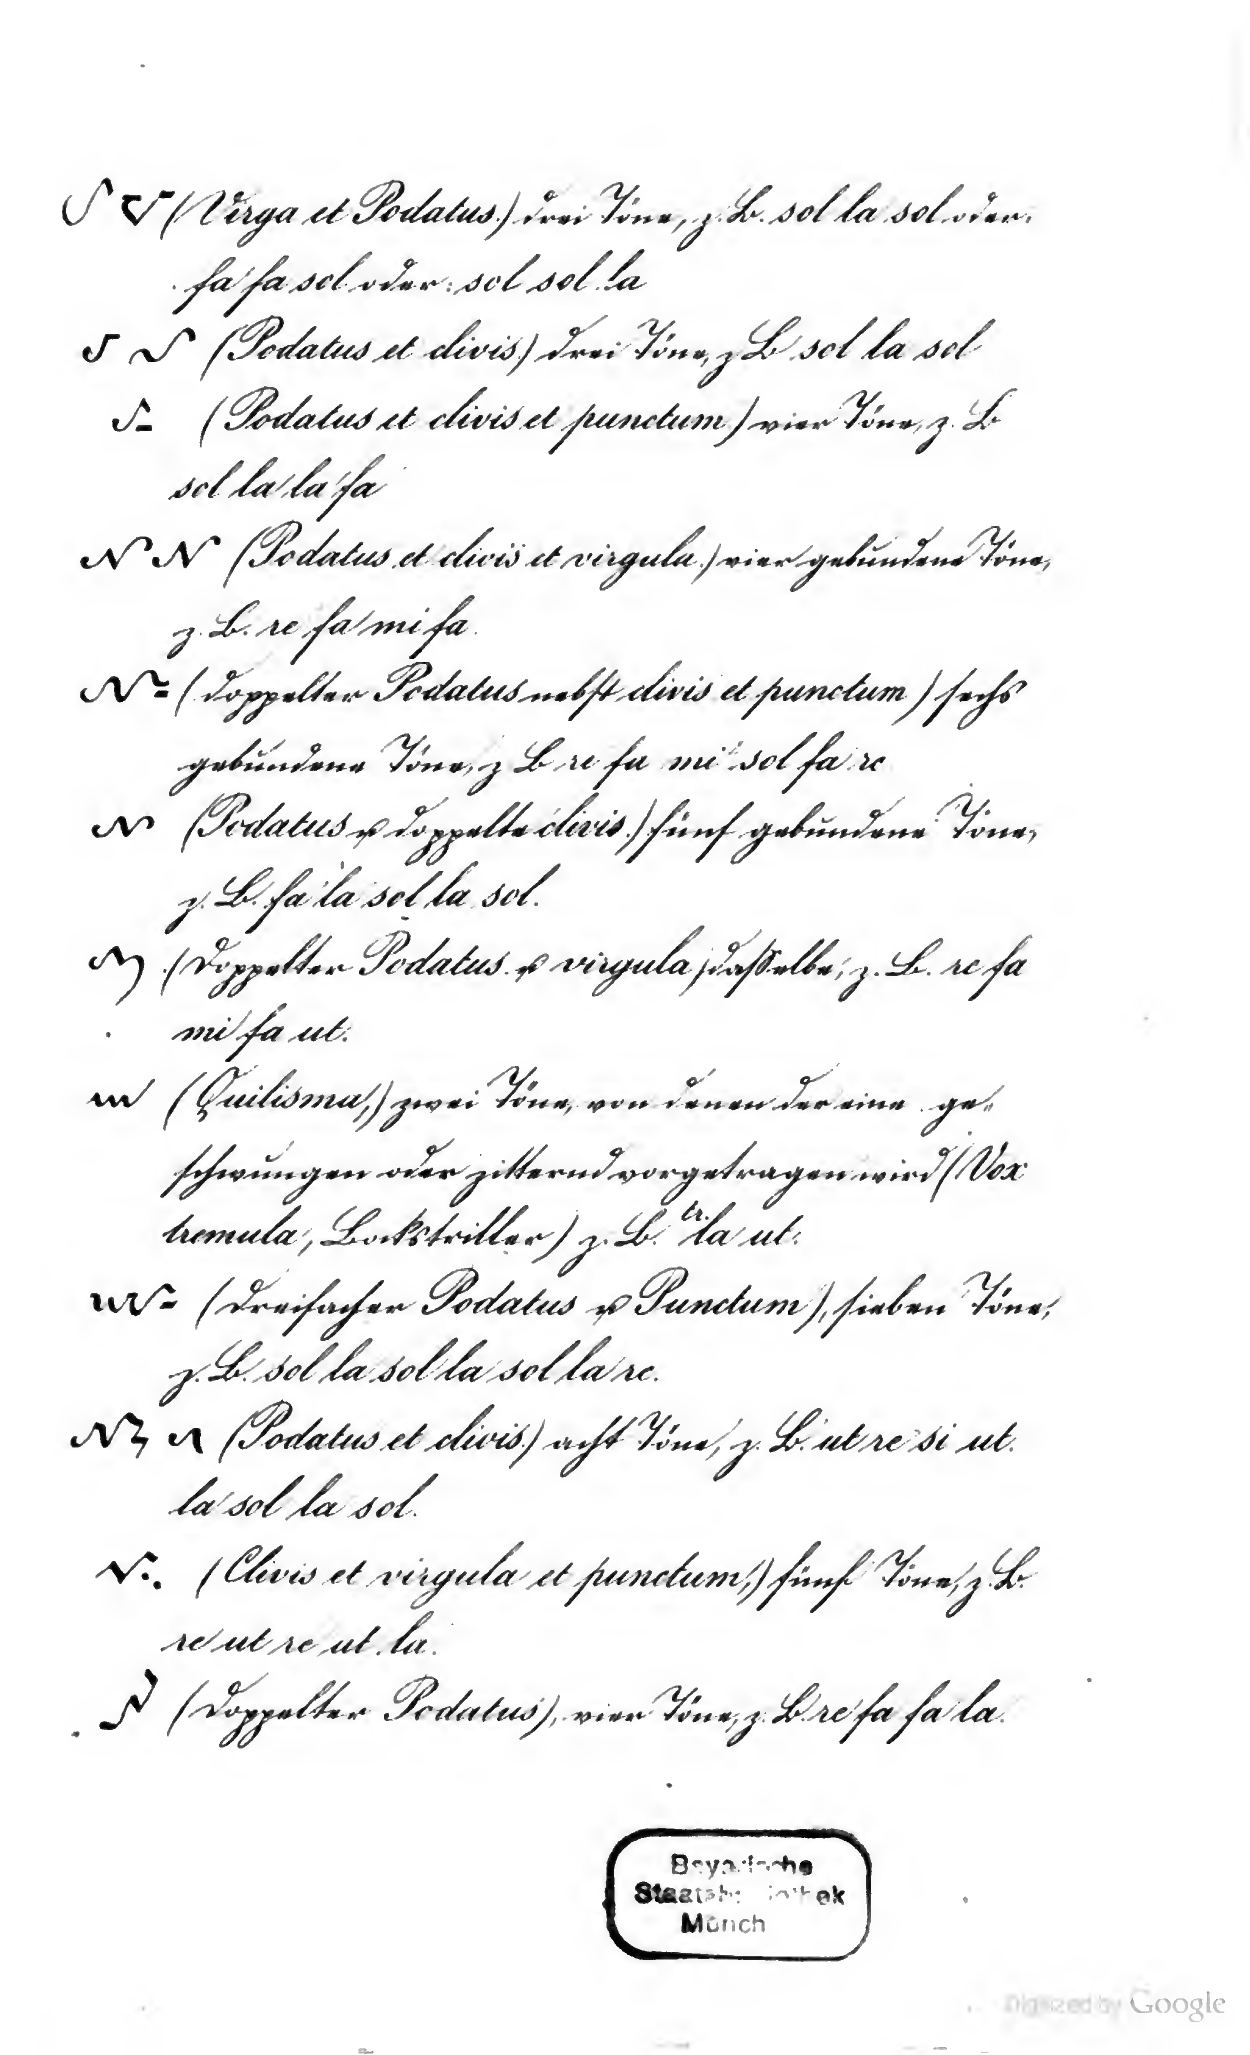 (Virga et Podatus.) drei Töne, z. B. sol la sol oder:
fa fa sol oder: sol sol la
(Podatus et clivis.) drei Töne, z B sol la sol
(Podatus et clivis et punctum) vier Töne, z. B
sol la la fa
(Podatus et clivis et virgula.) vier gebundene Töne,
z. B. re fa mi fa.
(doppelter Podatus nebst clivis et punctum) sechs
gebundene Töne, z B re fa mi sol fa re
(Podatus u doppelte clivis.) fünf gebundene Töne,
z. B. fa la sol la sol.
(Doppelter Podatus u virgula) dasselbe, z. B. re fa
mi fa ut.
(Quilisma,) zwei Töne, von denen der eine ge-
schwungen oder zitternd vorgetragen wird (Vox
tremula, Bockstriller) z. B. tr. la ut.
(dreifacher Podatus u Punctum), sieben Töne,
z. B. sol la sol la sol la re.
(Podatus et clivis.) acht Töne, z. B. ut re si ut.
la sol la sol.
(Clivis et virgula et punctum,) fünf Töne, z. B.
re ut re ut la.
(Doppelter Podatus), vier Töne, z. B. re fa fa la.
Bayerische
Staatsbibliothek
Münch
Digitized by Google